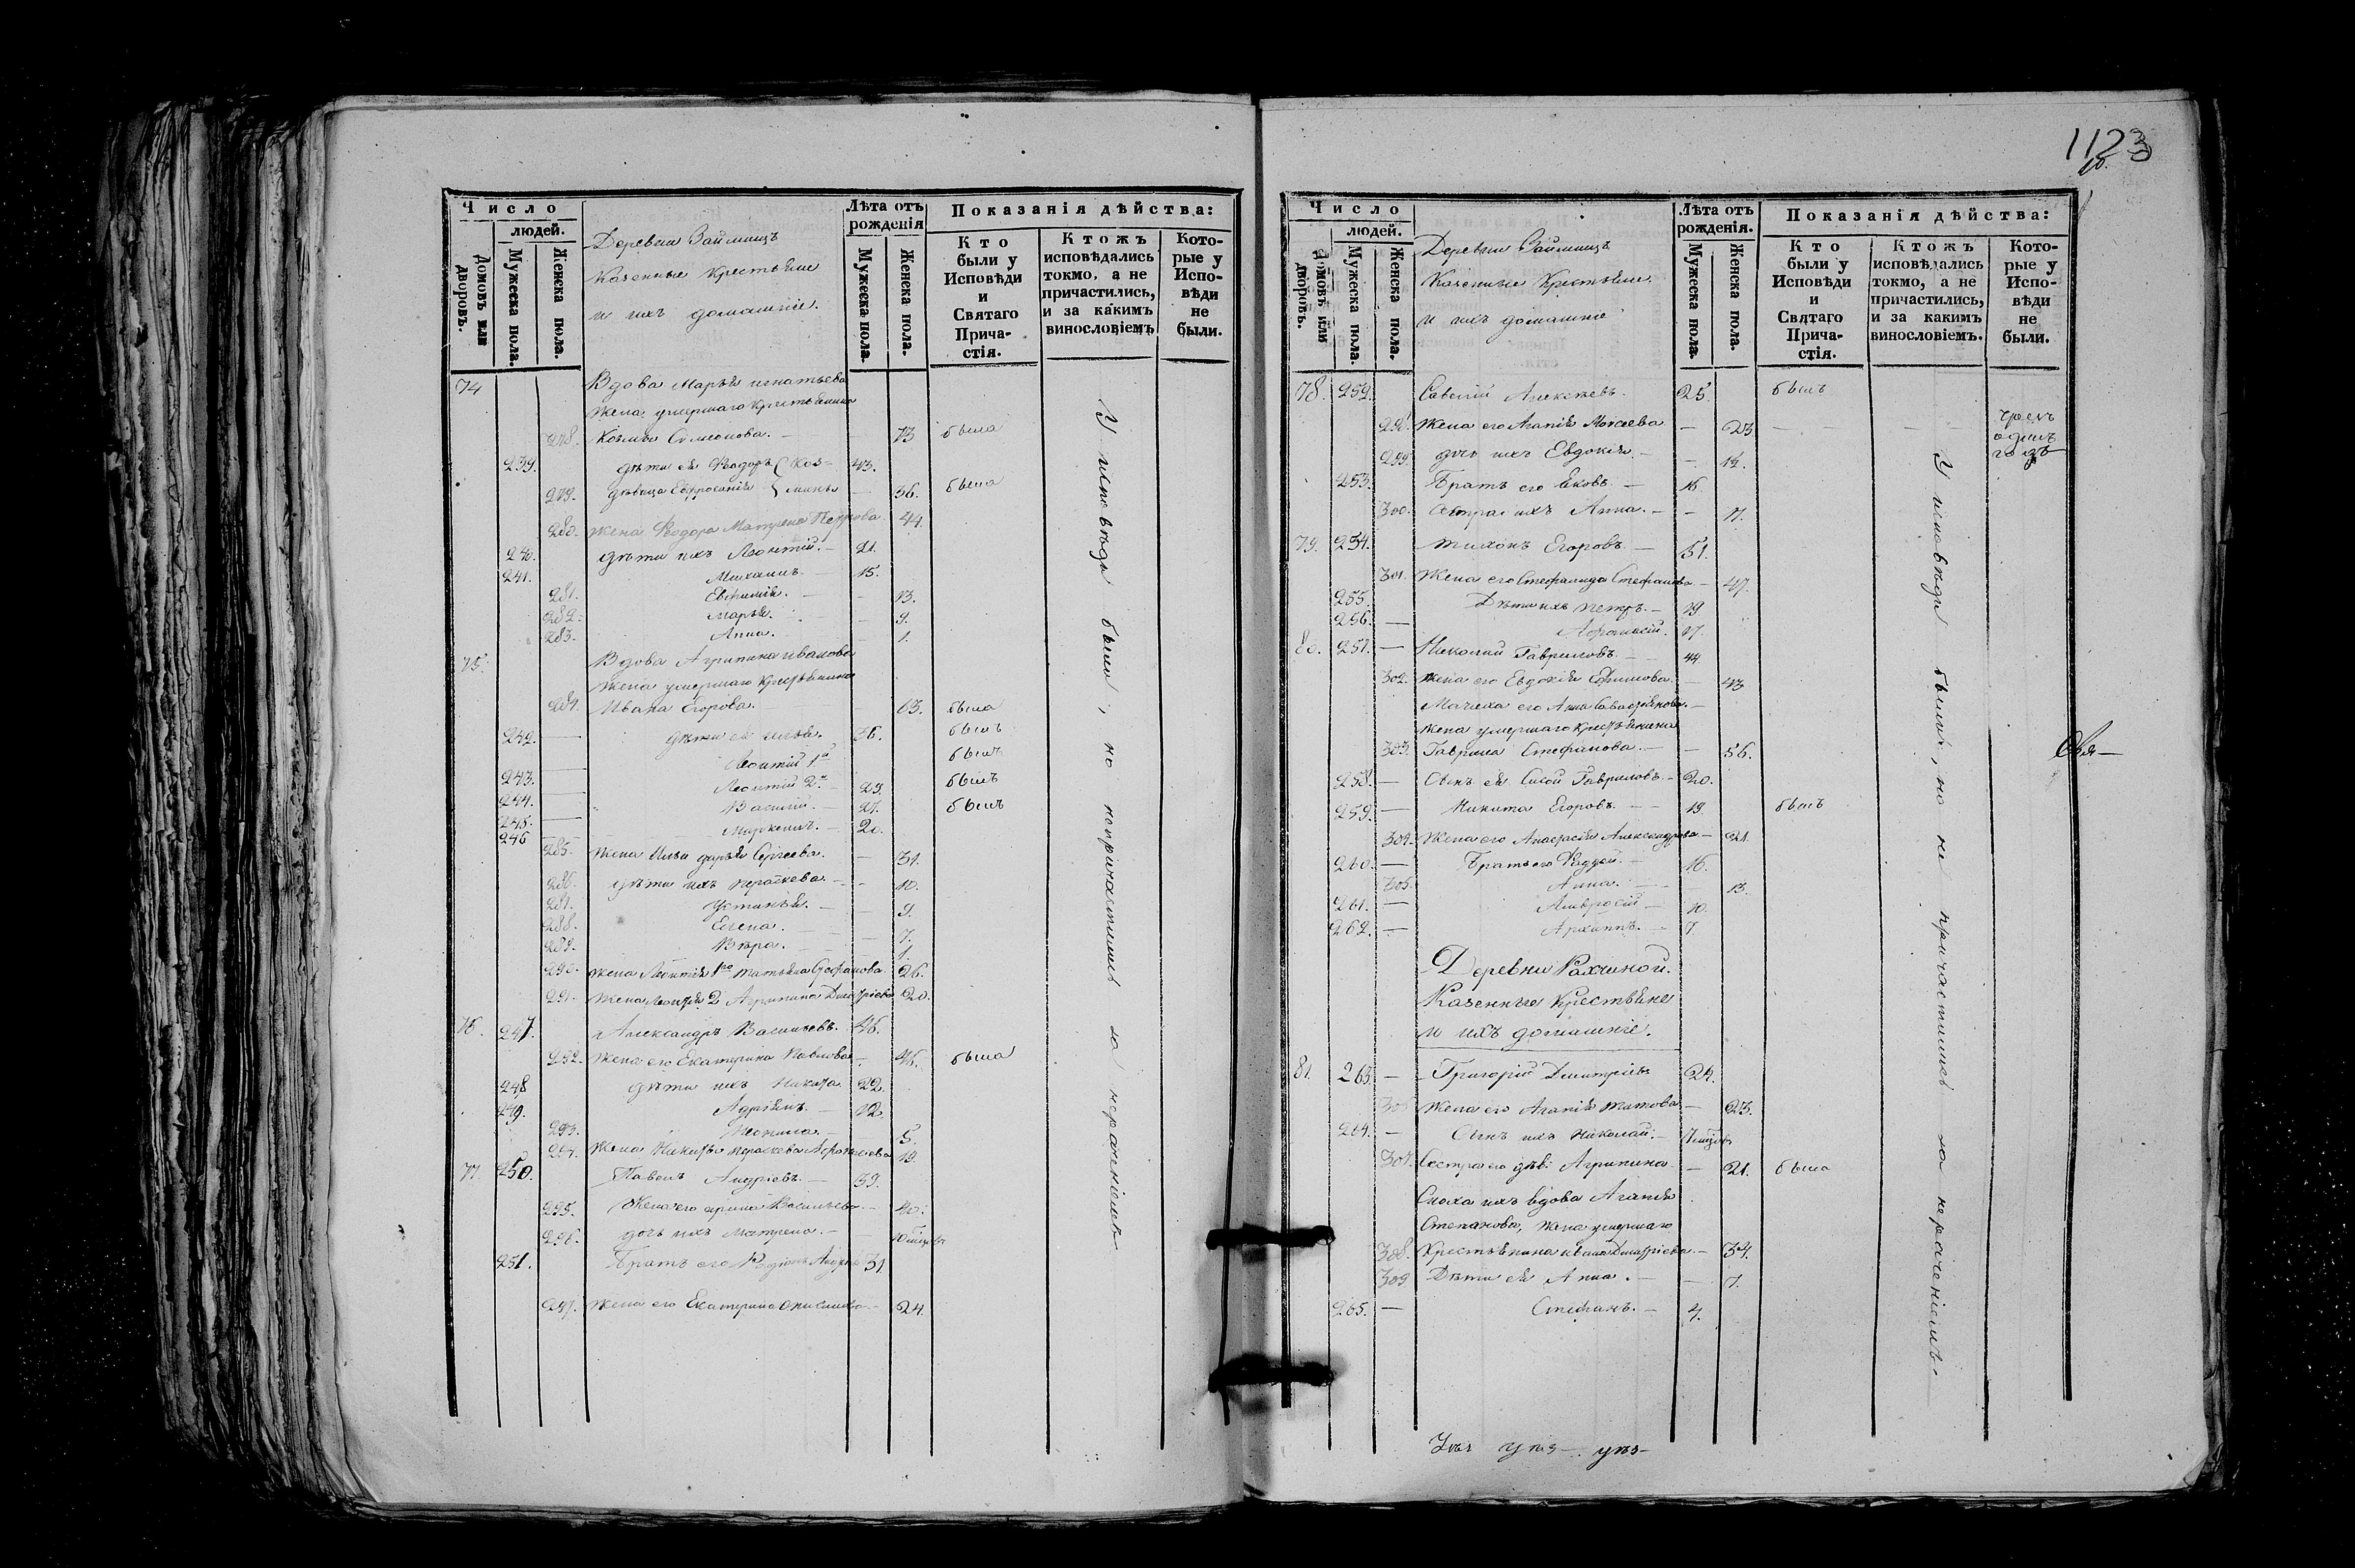 Число
людей.
Домовъ или дворовъ.
Мужеска пола.
Женска пола.
Деревни Займищъ
Казенные Крестьяне
и ихъ домашніе.
Лѣта отъ рожденія
Мужеска пола.
Женска пола.
Показанія дѣйства:
Кто были у Исповѣди и Святаго Причастія.
Ктожъ исповѣдались токмо, а не причастились, и за какимъ винословіемъ
Которые у Исповѣди не были.
74 Вдова Марья Игнатьева
Жена умершаго Крестьянина
278. Козмы Симеонова. — 73 была
239. дѣти ея Ѳеодоръ Коз- 43.
279. дѣвица Евфросинія мины — 36. была
280. Жена Ѳеодора Матрена Петрова 44.
240. дѣти ихъ Леонтій. — 21.
241. Михаилъ. — 15.
281. Евфимія. — 13.
282. Марья. — 9.
283. Анна. 1.
75. Вдова Агрипина Иванова
Жена умершаго Крестьянина
284. Ивана Егорова. 63. была
242. — дѣти ея Илья. 36. былъ
Леонтій 1й былъ
243. — Леонтій 2й — 29. былъ
244. — Василій. — 27. былъ
245. — Маркелъ. — 20.
246
285. Жена Ильи Дарья Сергеева. — 31.
286. дѣти ихъ Параскева. — 10.
287. Устинья. — 9.
288. Елена. — 7.
289. Вѣра. — 1.
290. Жена Леонтія 1го Татьяна Стефанова 26.
291. Жена Леонтія 2 Агрипина Дмитріева 20.
76. 247. Александръ Васильевъ. 46.
292. Жена его Екатерина Павлова — 46. была
248 дѣти ихъ Никита 22.
249. Адріанъ. — 12
293. Неонила — 5.
294. Жена Никиты Параскева Афонасіева 19.
77. 250. Павелъ Андріевъ. — 39.
295. Жена его Ирина Васильева — 40.
296. дочь ихъ Матрена. —
251. Братъ его Родіонъ Андрі 31
297. Жена его Екатерина — 24.
У исповѣди были, но непричастились за нераченіемъ
1123
Число
людей.
Домовъ или дворовъ.
Мужеска пола.
Женска пола.
Деревни Займищъ
Казенные Крестьяне
и ихъ домашніе
Лѣта отъ рожденія.
Мужеска пола.
Женска пола.
Показанія дѣйства:
Кто были у Исповѣди и Святаго Причастія.
Ктожъ исповѣдались токмо, а не причастились, и за какимъ винословіемъ.
Которые у Исповѣди не были.
78. 252. Савелій Алексѣевъ. 25. былъ
298. Жена его Агапія Моисеева — 23 — одинъ годъ
299. дочь ихъ Евдокія. —
253. Братъ его Яковъ. — 16.
300. Сестра ихъ Анна. — —
79. 254. Тихонъ Егоровъ — 51.
301. Жена его Стефанида Стефанова — 47.
255. Дѣти ихъ Петръ. — 19
256. — Афонасій. 17.
80. 257. — Николай Гавриловъ. — 44
302. Жена его Евдокія Ефимова — 43
Мачиха его Анна Савастьянова. —
Жена умершаго Крестьянина
303. Гаврила Стефанова. — — 56.
258. — Сынъ ея Сысой Гавриловъ — 20.
259. — Никита Егоровъ. — 19. былъ
304. Жена его Анастасія Александрова — 21.
260. — Братъ его Ѳаддей. — 16.
305. Анна. — 13.
261. — Амвросій — 10.
262. — Архиппъ. — 7
Деревни Рахчиной.
Казенные Крестьяне
и ихъ домашніе.
81. 263. — Григорій Дмитріевъ 24.
306 Жена его Агапія Титова — 23.
264. — Сынъ ихъ Николай. —
307. Сестра его дѣв: Агрипина — 21. была
Сноха ихъ вдова Агапія
Степанова, Жена умершаго
308. Крестьянина Ивана Дмитріева — 34.
309 Дѣти ея Анна. — — 7.
265. — Стефанъ. — 4.
У исповѣди были, но не причастились за нераченіемъ